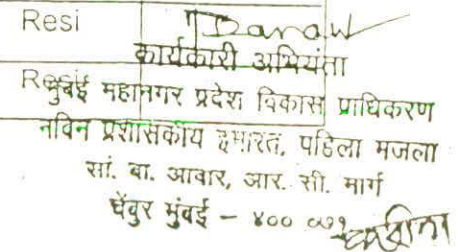 Resi
कार्यकारी अभियंता
Resi
मुंबई महानगर प्रदेश विकास प्राधिकरण
नविन प्रशासकीय इमारत, पहिला मजला
सां. बा. आवार, आर. सी. मार्ग
चेंबुर मुंबई - ४०० ०७१